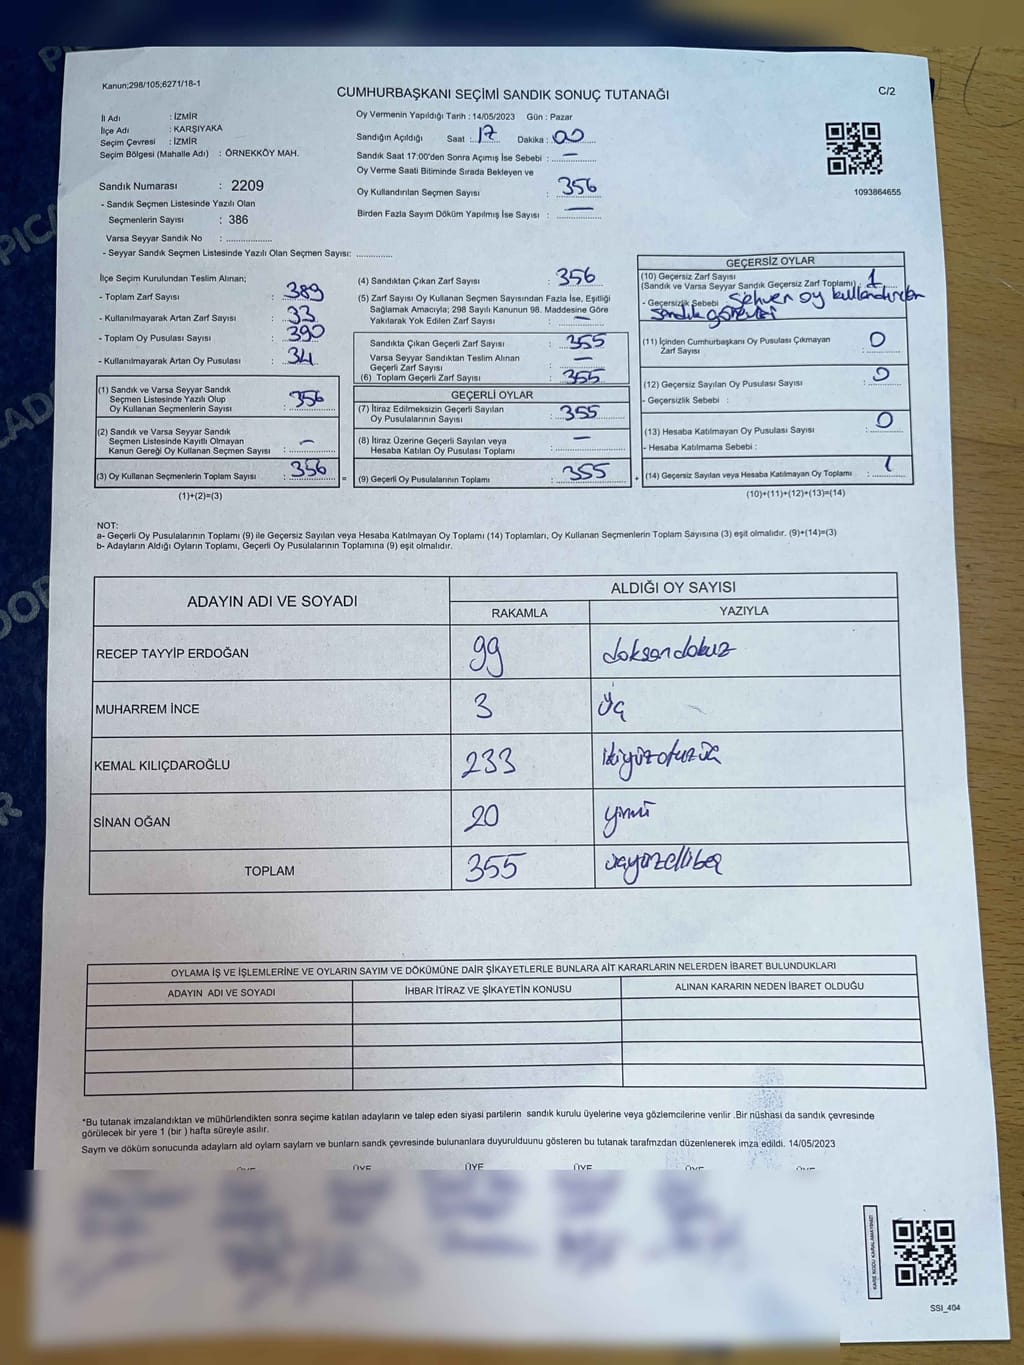 Kanun;298/105;6271/18-1
CUMHURBAŞKANI SEÇİMİ SANDIK SONUÇ TUTANAĞI
C/2
İl Adı : İZMİR
İlçe Adı : KARŞIYAKA
Seçim Çevresi : İZMİR
Seçim Bölgesi (Mahalle Adı) : ÖRNEKKÖY MAH.
Sandık Numarası : 2209
- Sandık Seçmen Listesinde Yazılı Olan
Seçmenlerin Sayısı : 386
Varsa Seyyar Sandık No : ................
- Seyyar Sandık Seçmen Listesinde Yazılı Olan Seçmen Sayısı: ............
Oy Vermenin Yapıldığı Tarih : 14/05/2023 Gün : Pazar
Sandığın Açıldığı Saat : 17 Dakika : 00
Sandık Saat 17:00'den Sonra Açımış İse Sebebi : —
Oy Verme Saati Bitiminde Sırada Bekleyen ve
Oy Kullandırılan Seçmen Sayısı : 356
Birden Fazla Sayım Döküm Yapılmış İse Sayısı : —
1093864655
İlçe Seçim Kurulundan Teslim Alınan;
- Toplam Zarf Sayısı : 389
- Kullanılmayarak Artan Zarf Sayısı : 33
- Toplam Oy Pusulası Sayısı : 390
- Kullanılmayarak Artan Oy Pusulası : 34
(1) Sandık ve Varsa Seyyar Sandık
Seçmen Listesinde Yazılı Olup
Oy Kullanan Seçmenlerin Sayısı : 356
(2) Sandık ve Varsa Seyyar Sandık
Seçmen Listesinde Kayıtlı Olmayan
Kanun Gereği Oy Kullanan Seçmen Sayısı : —
(3) Oy Kullanan Seçmenlerin Toplam Sayısı : 356
(1)+(2)=(3)
(4) Sandıktan Çıkan Zarf Sayısı : 356
(5) Zarf Sayısı Oy Kullanan Seçmen Sayısından Fazla İse, Eşitliği
Sağlamak Amacıyla; 298 Sayılı Kanunun 98. Maddesine Göre
Yakılarak Yok Edilen Zarf Sayısı : —
Sandıkta Çıkan Geçerli Zarf Sayısı : 355
Varsa Seyyar Sandıktan Teslim Alınan
Geçerli Zarf Sayısı : —
(6) Toplam Geçerli Zarf Sayısı : 355
GEÇERLİ OYLAR
(7) İtiraz Edilmeksizin Geçerli Sayılan
Oy Pusulalarının Sayısı : 355
(8) İtiraz Üzerine Geçerli Sayılan veya
Hesaba Katılan Oy Pusulası Toplamı : —
= (9) Geçerli Oy Pusulalarının Toplamı : 355
GEÇERSİZ OYLAR
(10) Geçersiz Zarf Sayısı
(Sandık ve Varsa Seyyar Sandık Geçersiz Zarf Toplamı) : 1
- Geçersizlik Sebebi : Sehven oy kullandırılan
sandık görevlisi
(11) İçinden Cumhurbaşkanı Oy Pusulası Çıkmayan
Zarf Sayısı : 0
(12) Geçersiz Sayılan Oy Pusulası Sayısı : 0
- Geçersizlik Sebebi :
(13) Hesaba Katılmayan Oy Pusulası Sayısı : 0
- Hesaba Katılmama Sebebi :
+ (14) Geçersiz Sayılan veya Hesaba Katılmayan Oy Toplamı : 1
(10)+(11)+(12)+(13)=(14)
NOT:
a- Geçerli Oy Pusulalarının Toplamı (9) ile Geçersiz Sayılan veya Hesaba Katılmayan Oy Toplamı (14) Toplamları, Oy Kullanan Seçmenlerin Toplam Sayısına (3) eşit olmalıdır. (9)+(14)=(3)
b- Adayların Aldığı Oyların Toplamı, Geçerli Oy Pusulalarının Toplamına (9) eşit olmalıdır.
ADAYIN ADI VE SOYADI ALDIĞI OY SAYISI
RAKAMLA YAZIYLA
RECEP TAYYİP ERDOĞAN 99 doksandokuz
MUHARREM İNCE 3 üç
KEMAL KILIÇDAROĞLU 233 ikiyüzotuzüç
SİNAN OĞAN 20 yirmi
TOPLAM 355 üçyüzellibeş
OYLAMA İŞ VE İŞLEMLERİNE VE OYLARIN SAYIM VE DÖKÜMÜNE DAİR ŞİKAYETLERLE BUNLARA AİT KARARLARIN NELERDEN İBARET BULUNDUKLARI
ADAYIN ADI VE SOYADI İHBAR İTİRAZ VE ŞİKAYETİN KONUSU ALINAN KARARIN NEDEN İBARET OLDUĞU
*Bu tutanak imzalandıktan ve mühürlendikten sonra seçime katılan adayların ve talep eden siyasi partilerin sandık kurulu üyelerine veya gözlemcilerine verilir .Bir nüshası da sandık çevresinde
görülecek bir yere 1 (bir ) hafta süreyle asılır.
Sayım ve döküm sonucunda adayların ald oyların sayların ve bunların sandk çevresinde bulunanlara duyurulduunu gösteren bu tutanak tarafmzdan düzenlenerek imza edildi. 14/05/2023
ÜYE ÜYE ÜYE ÜYE ÜYE ÜYE
KARE KODU KARALAMAYINIZ!
SSI_404